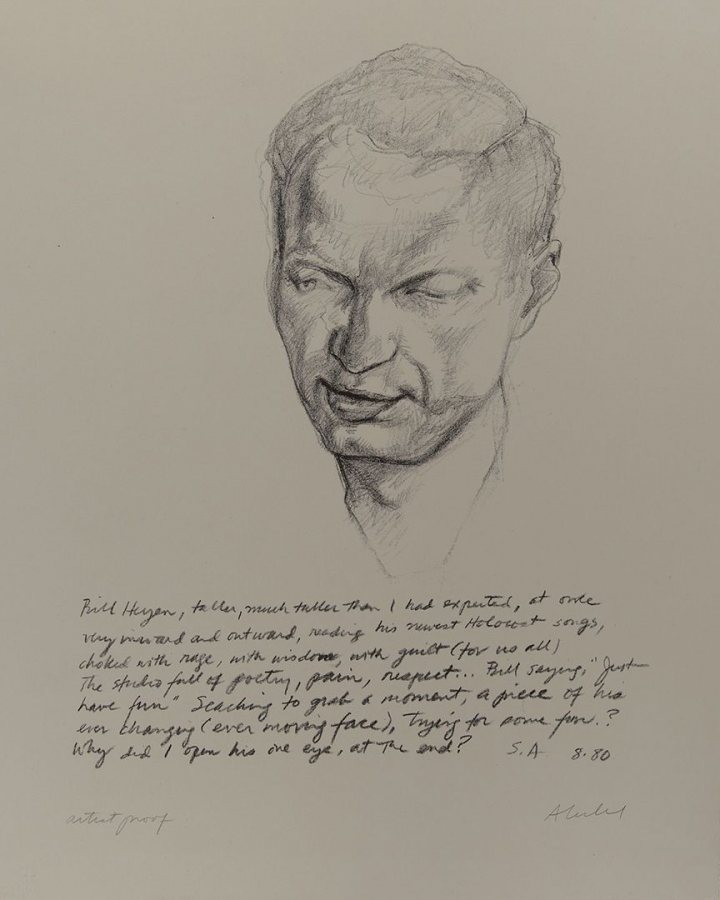 Bill Heyen, taller, much taller than I had expected, at once
very inward and outward, reading his newest Holocost songs,
choked with rage, with wisdom, with guilt (for us all)
The studio full of poetry, pain, respect... Bill saying, "Just
have fun" Seaching to grab a moment, a piece of his
ever changing (ever moving face), trying for some fun.?
Why did I open his one eye, at the end? S.A 8.80
artist proof